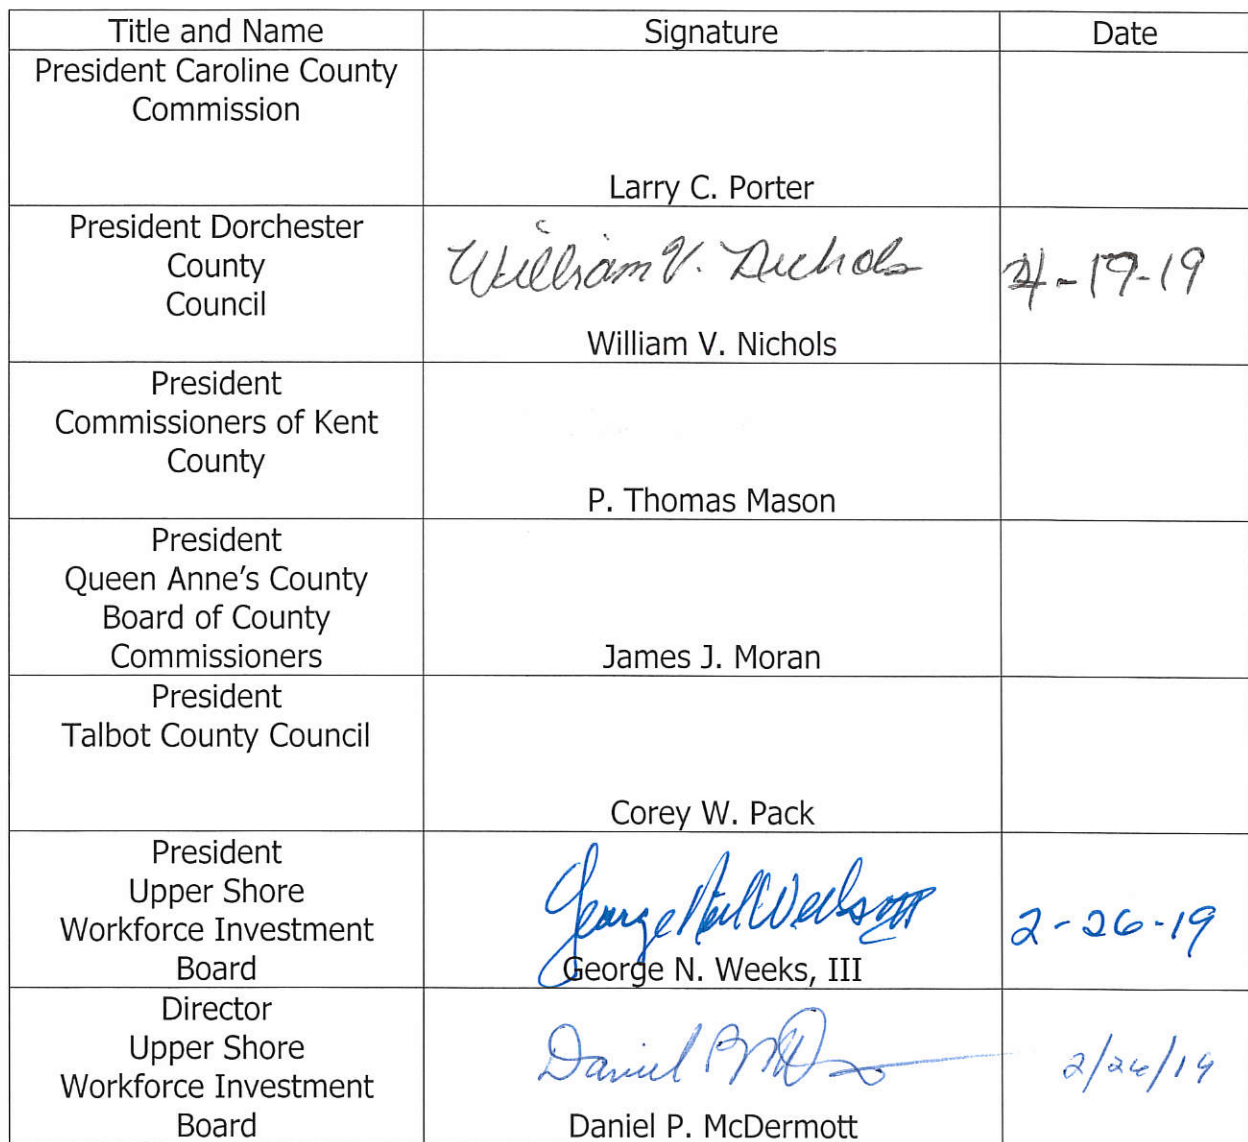 Title and Name Signature Date
President Caroline County
Commission
Larry C. Porter
President Dorchester
County
Council
William V. Nichols
4-19-19
William V. Nichols
President
Commissioners of Kent
County
P. Thomas Mason
President
Queen Anne's County
Board of County
Commissioners
James J. Moran
President
Talbot County Council
Corey W. Pack
President
Upper Shore
Workforce Investment
Board
George Neil Weeks III
2-26-19
George N. Weeks, III
Director
Upper Shore
Workforce Investment
Board
Daniel P McD
2/26/19
Daniel P. McDermott